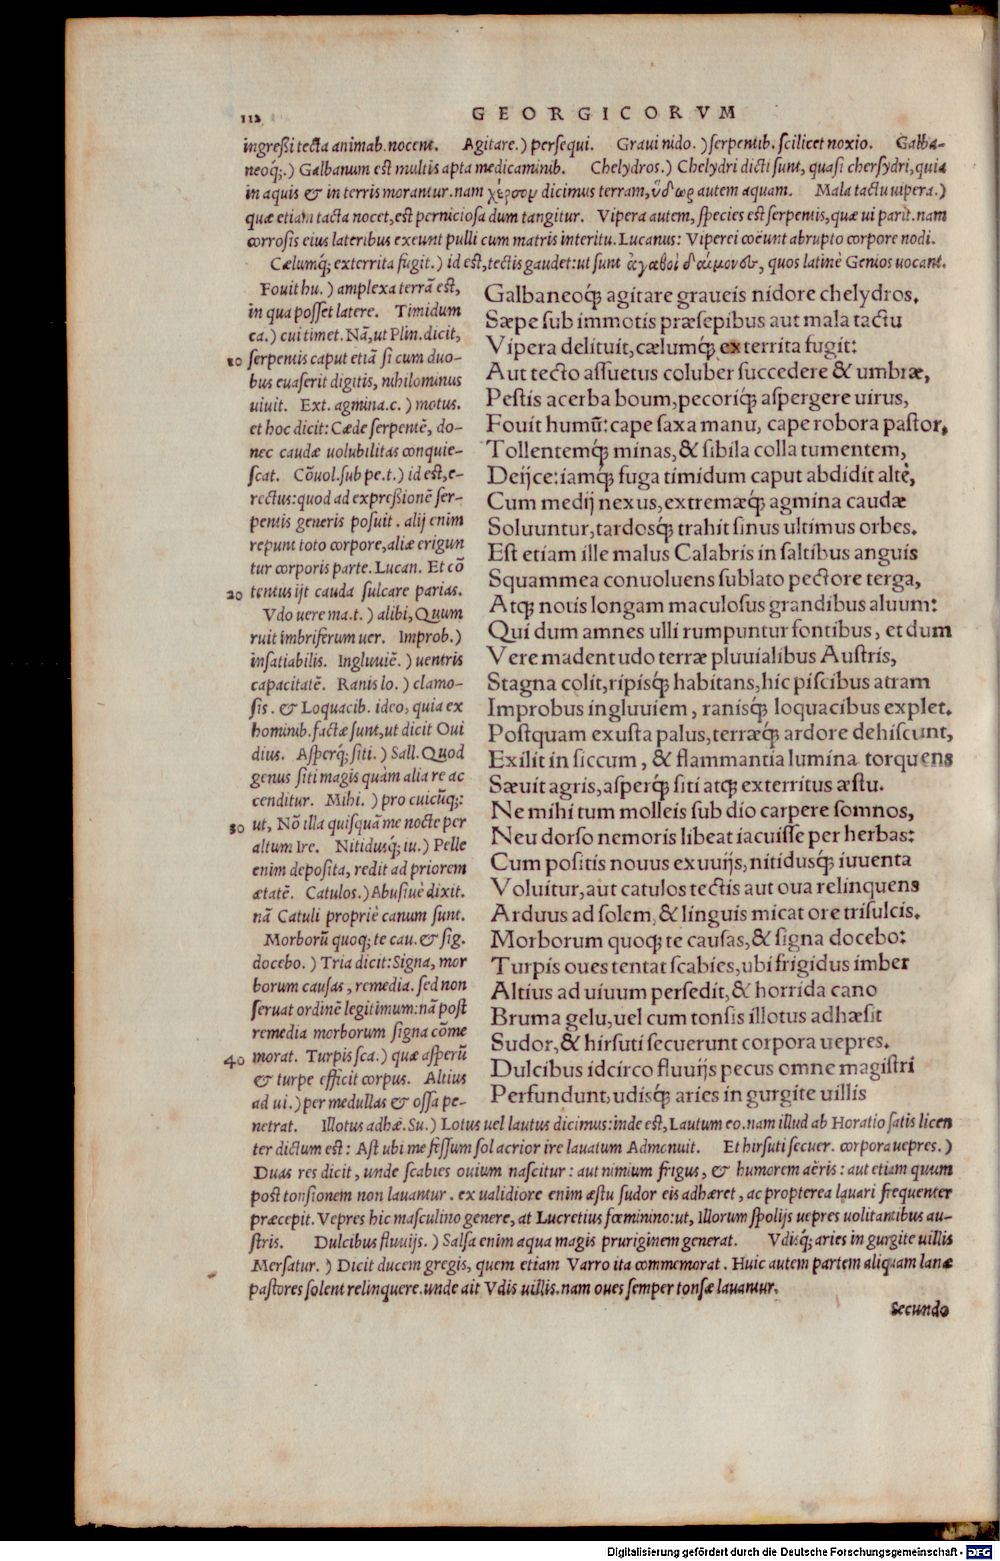 112
GEORGICORVM
ingreßi tecta animab. nocent. Agitare.) persequi. Graui nido.) serpentib. scilicet noxio. Galba-
neoq;.) Galbanum est multis apta medicaminib. Chelydros.) Chelydri dicti sunt, quasi chersydri, quia
in aquis & in terris morantur. nam χέρσον dicimus terram, ὕδωρ autem aquam. Mala tactu uipera.)
quæ etiam tacta nocet, est perniciosa dum tangitur. Vipera autem, species est serpentis, quæ ui parit. nam
corrosis eius lateribus exeunt pulli cum matris interitu. Lucanus: Viperei coëunt abrupto corpore nodi.
Cælumq; exterrita fugit.) id est, tectis gaudet: ut sunt ἀγαθοὶ δαίμονες, quos latinè Genios uocant.
Fouit hu.) amplexa terrā est,
in qua posset latere. Timidum
ca.) cui timet. Nā, ut Plin. dicit,
10 serpentis caput etiā si cum duo-
bus euaserit digitis, nihilominus
uiuit. Ext. agmina.c.) motus.
et hoc dicit: Cæde serpentē, do-
nec caudæ uolubilitas conquie-
scat. Cōuol. sub pe.t.) id est, e-
rectus: quod ad expreßionē ser-
pentis generis posuit. alij enim
repunt toto corpore, aliæ erigun
tur corporis parte. Lucan. Et cō
20 tentus ijt cauda sulcare parias.
Vdo uere ma.t.) alibi, Quum
ruit imbriferum uer. Improb.)
insatiabilis. Ingluuiē.) uentris
capacitatē. Ranis lo.) clamo-
sis. & Loquacib. ideo, quia ex
hominib. factæ sunt, ut dicit Oui
dius. Asperq; siti.) Sall. Quod
genus siti magis quàm alia re ac
cenditur. Mihi.) pro cuicūq;:
30 ut, Nō illa quisquā me nocte per
altum Ire. Nitidusq; iu.) Pelle
enim deposita, redit ad priorem
ætatē. Catulos.) Abusiuè dixit.
nā Catuli propriè canum sunt.
Morborū quoq; te cau. & sig.
docebo.) Tria dicit: Signa, mor
borum causas, remedia. sed non
seruat ordinē legitimum: nā post
remedia morborum signa cōme
40 morat. Turpis sca.) quæ asperū
& turpe efficit corpus. Altius
ad ui.) per medullas & ossa pe-
Galbaneoq; agitare graueis nidore chelydros.
Sæpe sub immotis præsepibus aut mala tactu
Vipera delituit, cælumq; exterrita fugit:
Aut tecto assuetus coluber succedere & umbræ,
Pestis acerba boum, pecoriq; aspergere uirus,
Fouit humū: cape saxa manu, cape robora pastor,
Tollentemq; minas, & sibila colla tumentem,
Deijce: iamq; fuga timidum caput abdidit altè,
Cum medij nexus, extremæq; agmina caudæ
Soluuntur, tardosq; trahit sinus ultimus orbes.
Est etiam ille malus Calabris in saltibus anguis
Squammea conuoluens sublato pectore terga,
Atq; notis longam maculosus grandibus aluum:
Qui dum amnes ulli rumpuntur fontibus, et dum
Vere madent udo terræ pluuialibus Austris,
Stagna colit, ripisq; habitans, hic piscibus atram
Improbus ingluuiem, ranisq; loquacibus explet.
Postquam exusta palus, terræq; ardore dehiscunt,
Exilit in siccum, & flammantia lumina torquens
Sæuit agris, asperq; siti atq; exterritus æstu.
Ne mihi tum molleis sub dio carpere somnos,
Neu dorso nemoris libeat iacuisse per herbas:
Cum positis nouus exuuijs, nitidusq; iuuenta
Voluitur, aut catulos tectis aut oua relinquens
Arduus ad solem, & linguis micat ore trisulcis.
Morborum quoq; te causas, & signa docebo:
Turpis oues tentat scabies, ubi frigidus imber
Altius ad uiuum persedit, & horrida cano
Bruma gelu, uel cum tonsis illotus adhæsit
Sudor, & hirsuti secuerunt corpora uepres.
Dulcibus idcirco fluuijs pecus omne magistri
Perfundunt, udisq; aries in gurgite uillis
netrat. Illotus adhæ. Su.) Lotus uel lautus dicimus: inde est, Lautum eo. nam illud ab Horatio satis licen
ter dictum est: Ast ubi me fessum sol acrior ire lauatum Admonuit. Et hirsuti secuer. corpora uepres.)
Duas res dicit, unde scabies ouium nascitur: aut nimium frigus, & humorem aëris: aut etiam quum
post tonsionem non lauantur. ex ualidiore enim æstu sudor eis adhæret, ac propterea lauari frequenter
præcepit. Vepres hic masculino genere, at Lucretius fœminino: ut, Illorum spolijs uepres uolitantibus au-
stris. Dulcibus fluuijs.) Salsa enim aqua magis pruriginem generat. Vdisq; aries in gurgite uillis
Mersatur.) Dicit ducem gregis, quem etiam Varro ita commemorat. Huic autem partem aliquam lanæ
pastores solent relinquere. unde ait Vdis uillis. nam oues semper tonsæ lauantur.
Secundo
Digitalisierung gefördert durch die Deutsche Forschungsgemeinschaft - DFG